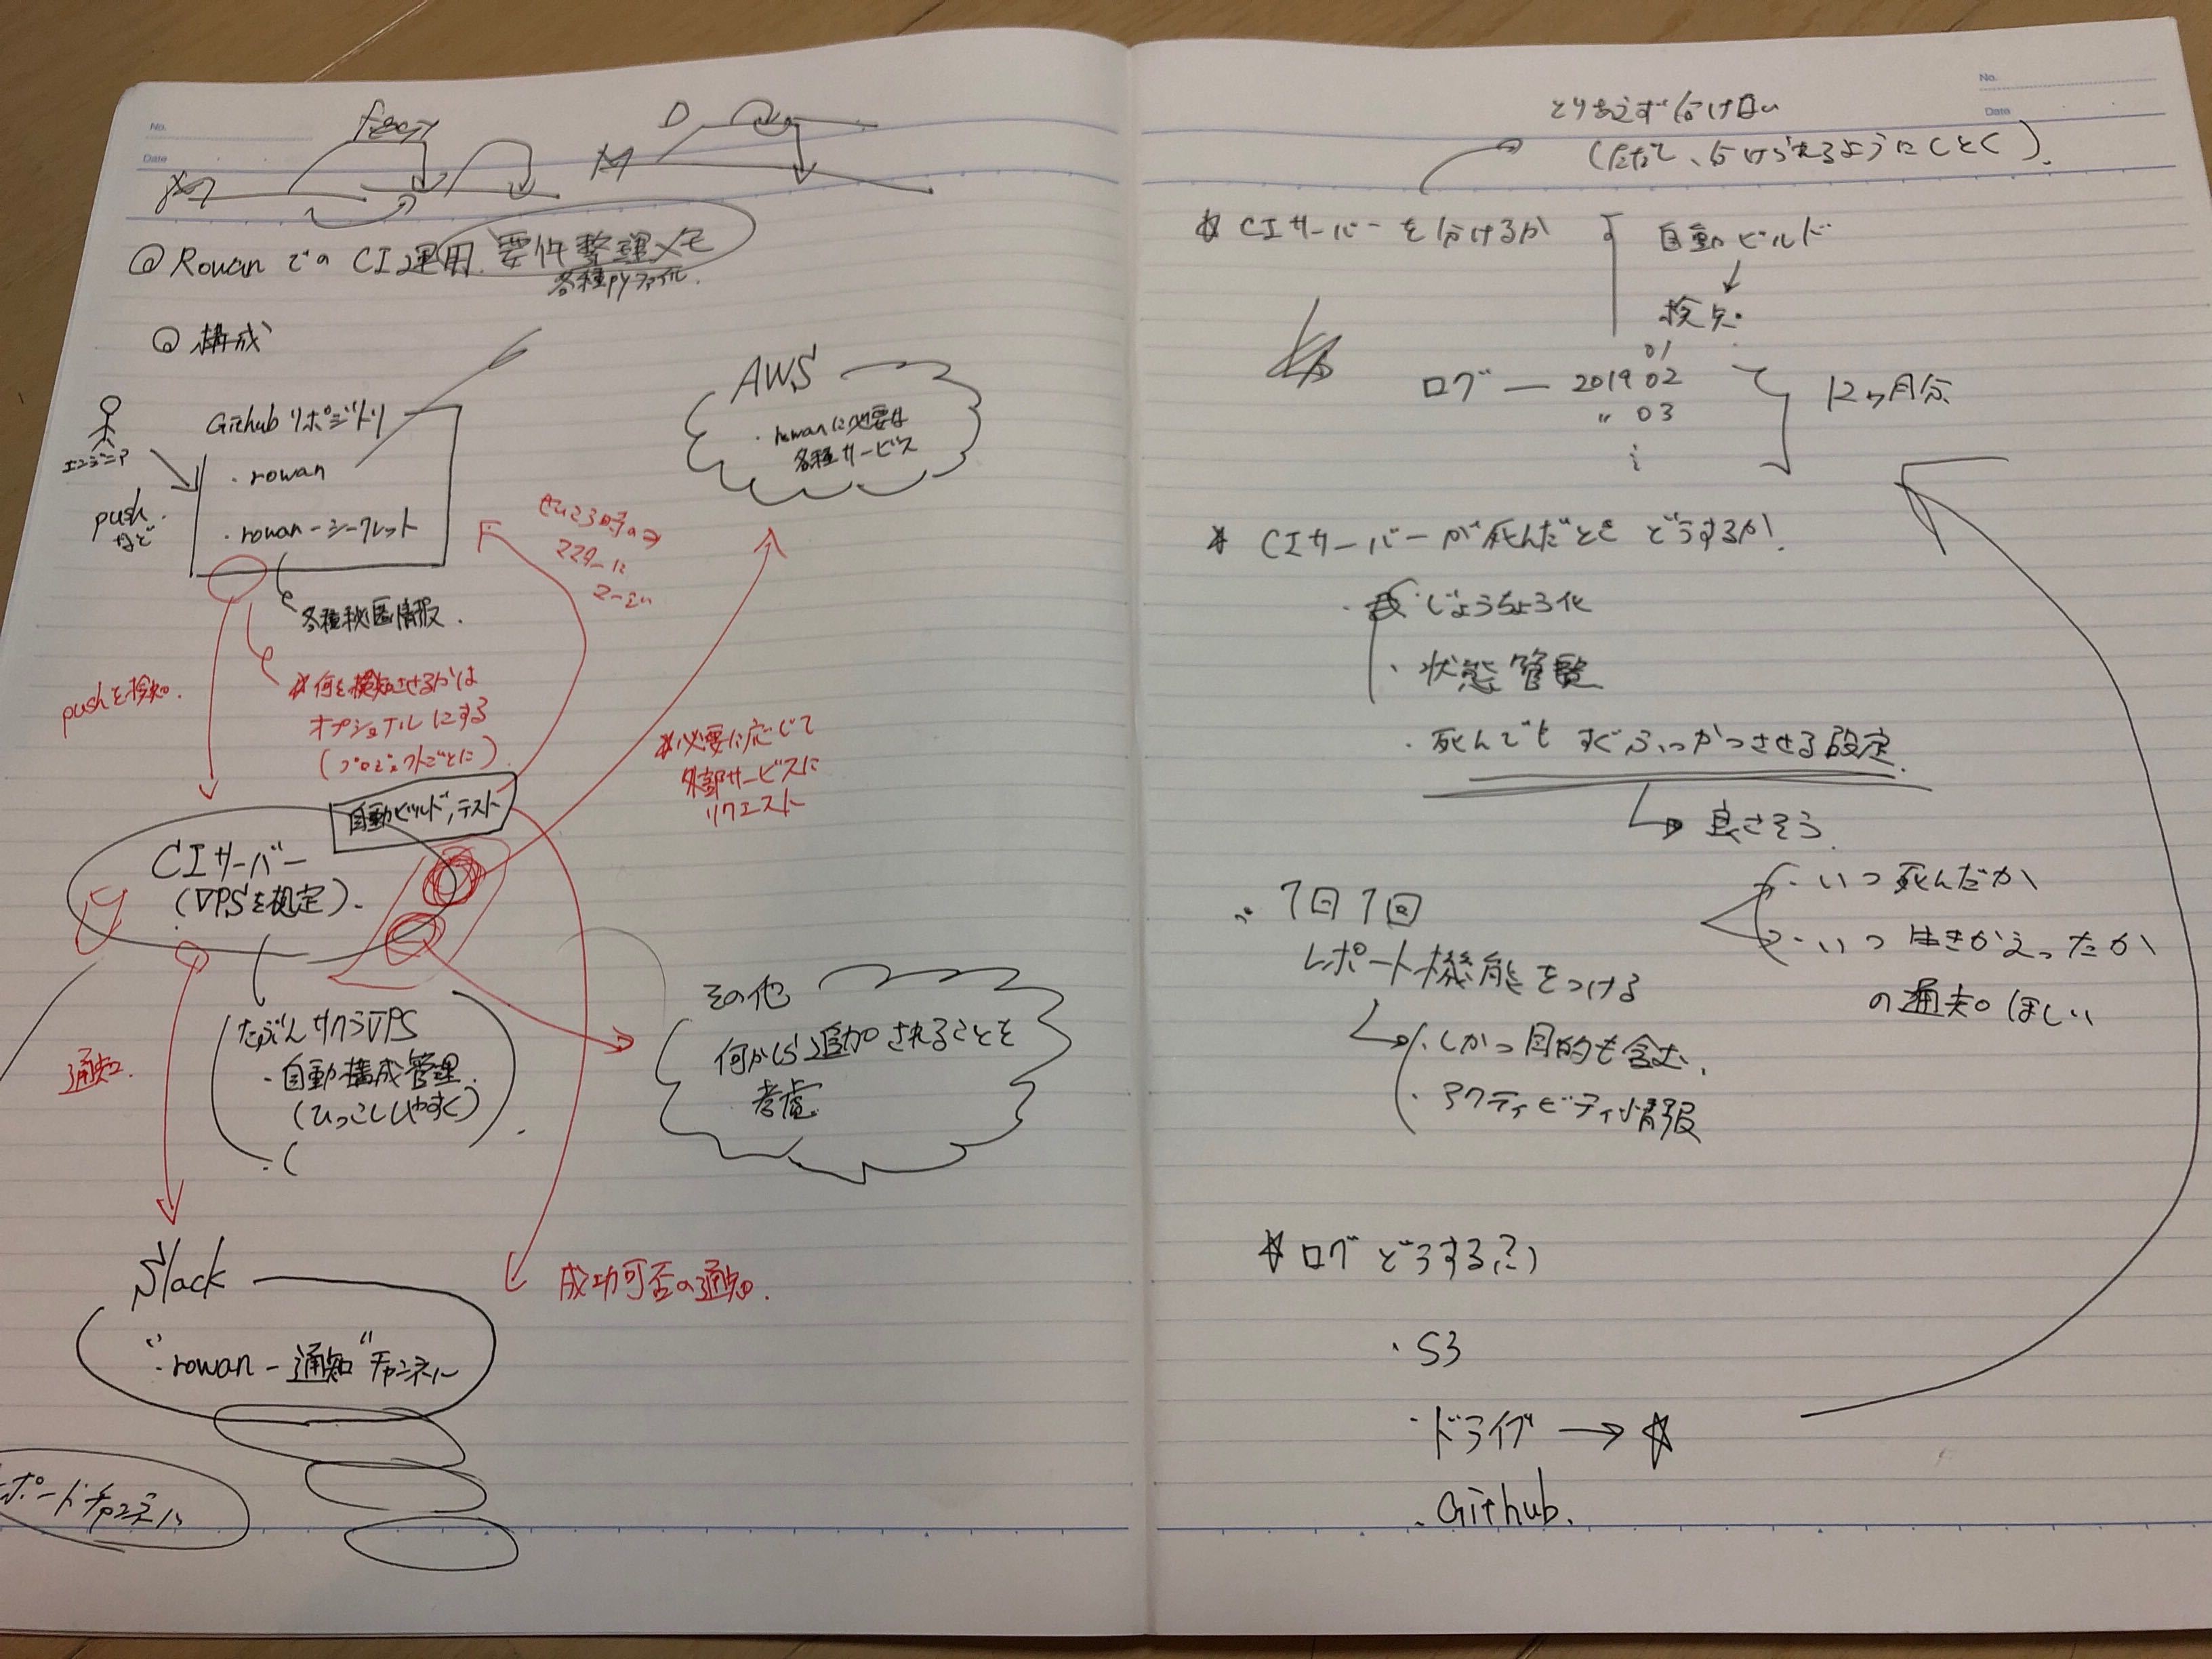 No.
Date
D
M
◎ Rowan での CI運用 要件整理メモ
各種pyファイル.
◎ 構成
エンジニア
pushなど
Githubリポジトリ
・rowan
・rowan-シークレット
各種秘匿情報.
AWS
・rowanに必要な
各種サービス
pushを検知.
☆何を検知させるかは
オプショナルにする
(プロジェクトごとに)
せいこう時のみ
マスターに
マージ
☆必要に応じて
外部サービスに
リクエスト
自動ビルド,テスト
CIサーバー
(VPSを想定).
たぶんサクラVPS
・自動構成管理.
(ひっこししやすく)
その他
何かしら追加されることを
考慮
通知.
成功可否の通知.
Slack
"・rowan-通知"チャンネル
ポートチャンネル
No.
Date
とりあえず分けない
(ただし、分けられるようにしとく).
☆ CIサーバーを分けるか
自動ビルド
↓
検知
ログ — 2019 01
02
〃 03
12ヶ月分
☆ CIサーバーが死んだとき どうするか.
・じょうちょう化
・状態管理
・死んでも すぐふっかつさせる設定.
良さそう.
・いつ死んだか
・いつ生きかえったか
の通知ほしい
1日1回
レポート機能をつける
・しかつ目的も含む.
・アクティビティ情報
☆ログどうする?
・S3
・ドライブ → ☆
・Github.